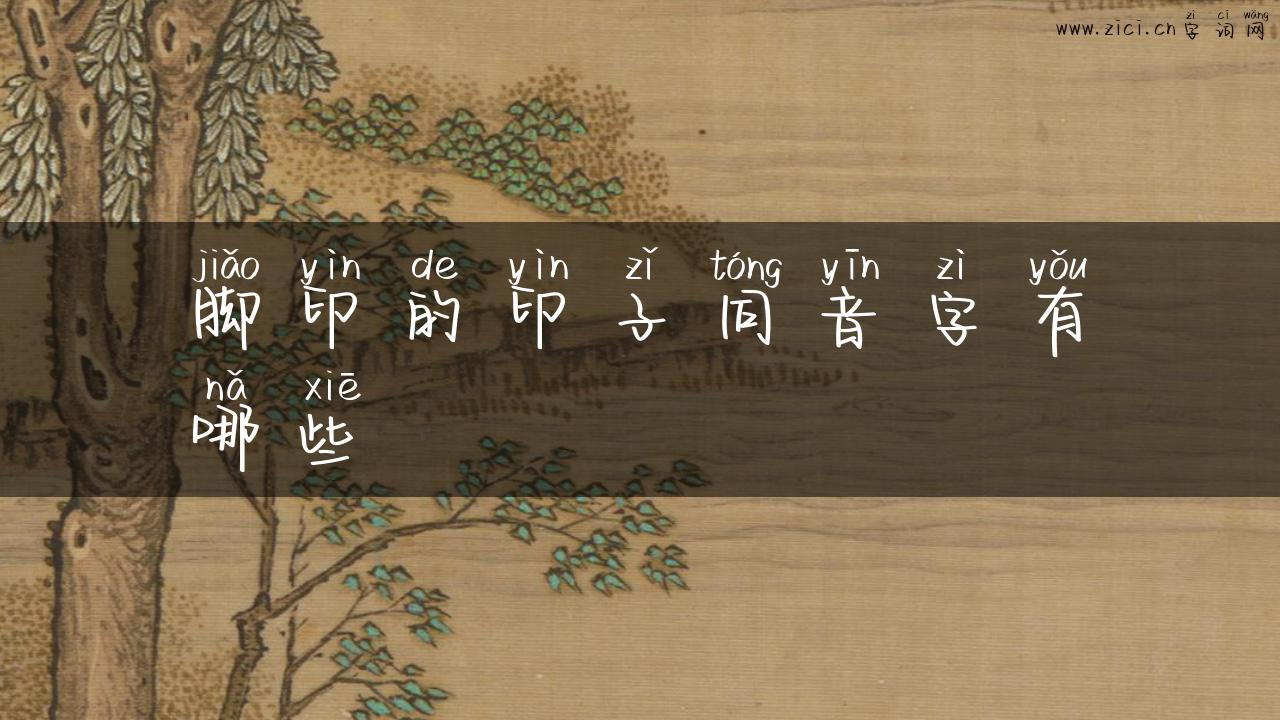 zì cí wǎng
www.zici.cn 字词网
jiǎo yìn de yìn zǐ tóng yīn zì yǒu
脚印的印子同音字有
nǎ xiē
哪些